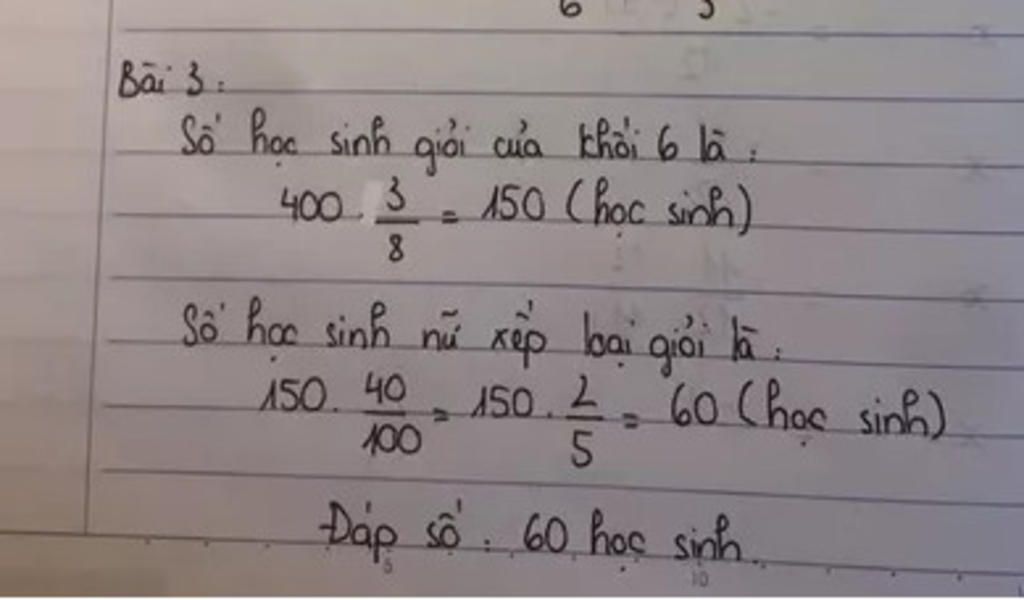 6 3
Bài 3:
Số học sinh giỏi của khối 6 là:
400 . 3/8 = 150 (học sinh)
Số học sinh nữ xếp loại giỏi là:
150 . 40/100 = 150 . 2/5 = 60 (học sinh)
Đáp số : 60 học sinh.
5 10